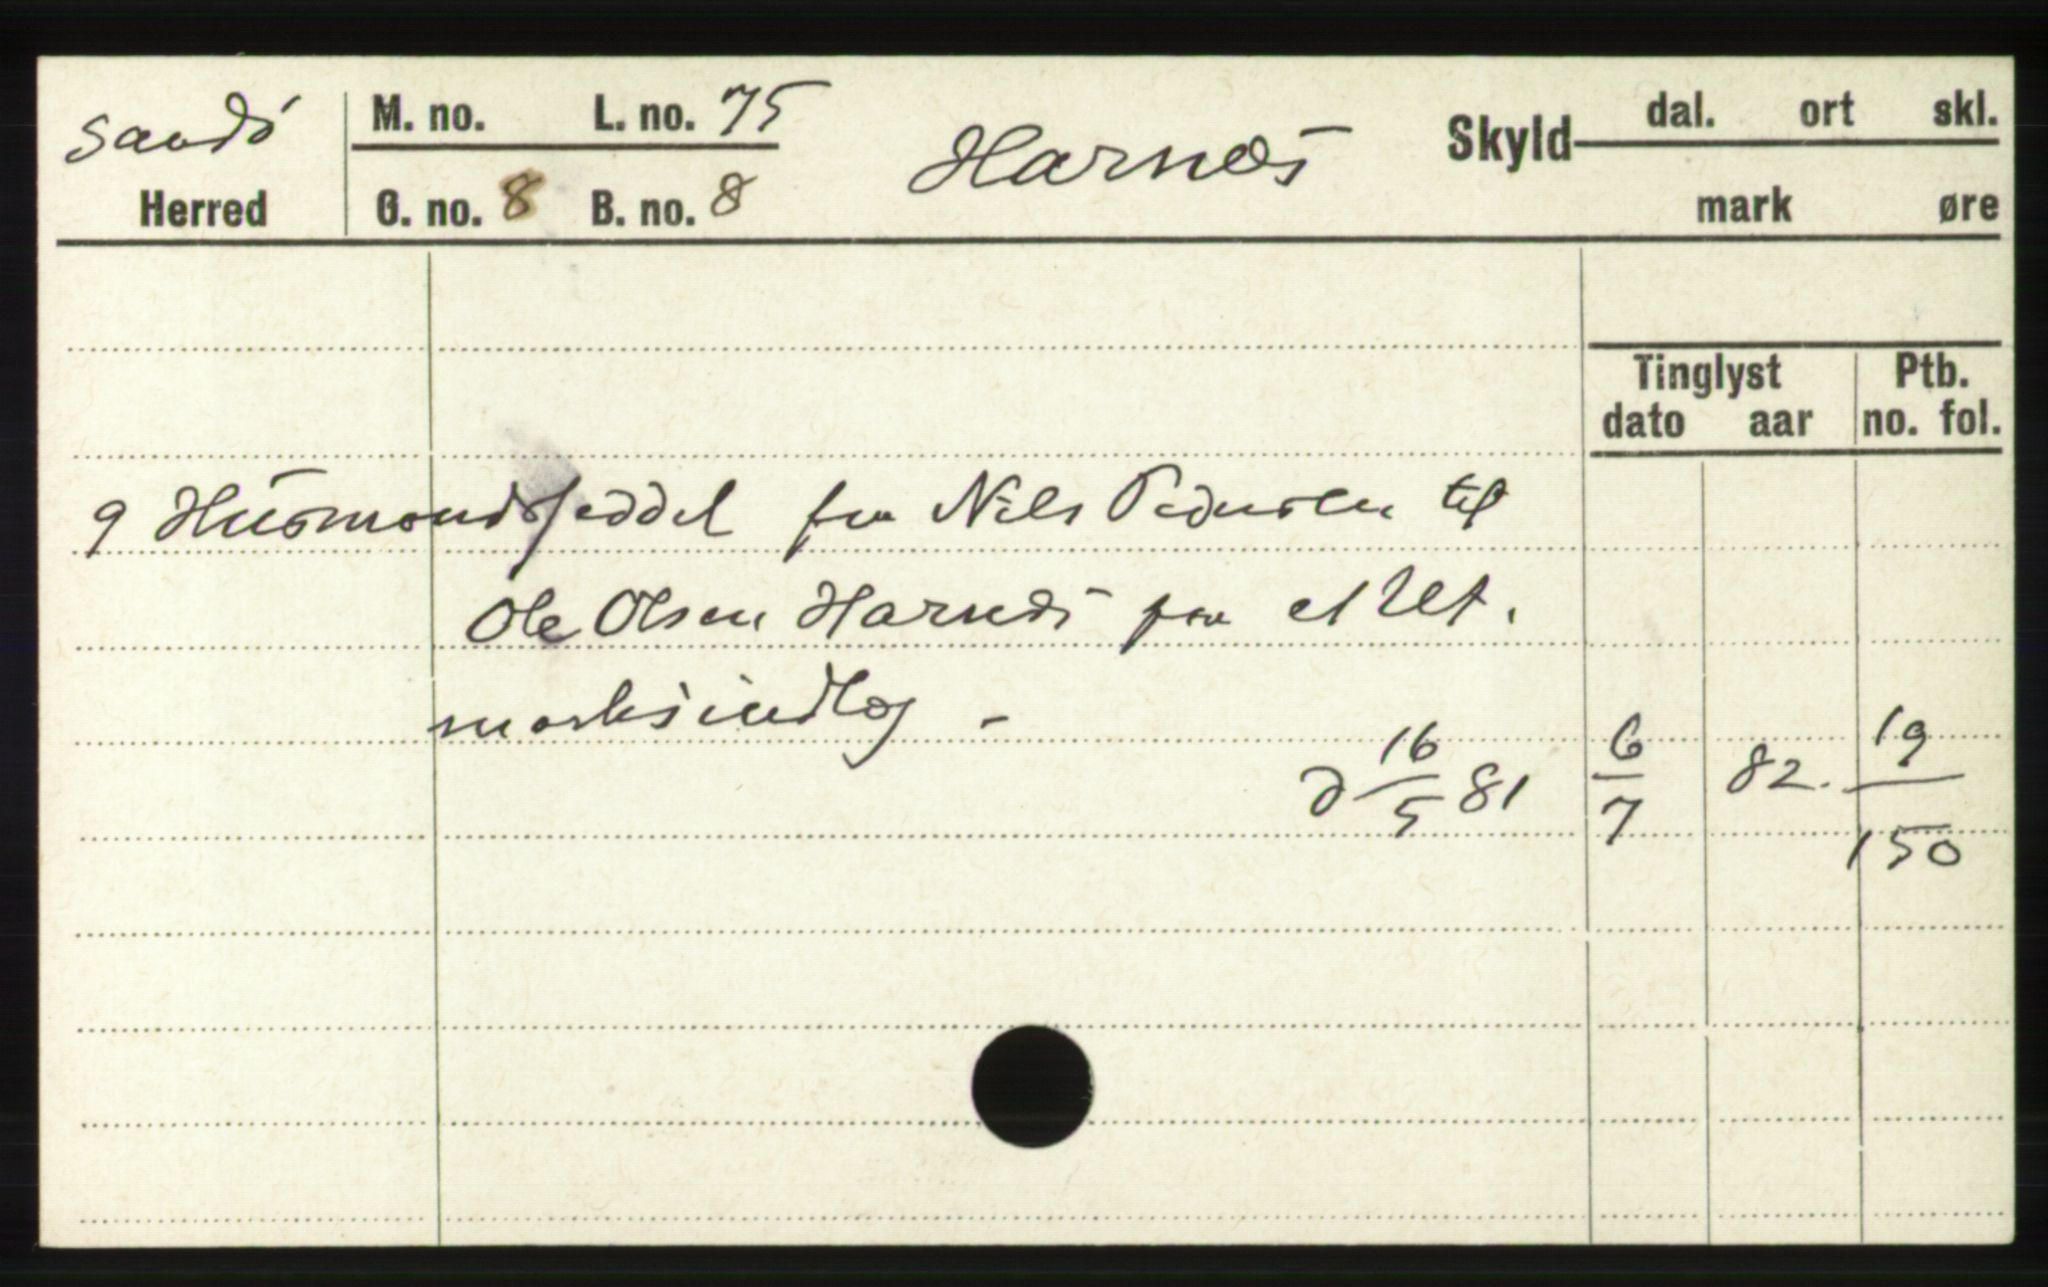 Sandö
Herred
M. no. L. no. 75
G. no. 8 B. no. 8
Harnæs
Skyld dal. ort skl.
mark øre
Tinglyst Ptb.
dato aar no. fol.
9 Husmandsseddel fra Nils Pedersen til
Ole Olsen Harnæs paa et Ut.
marksindlæg -
d 16/5 81 6/7 82. 19/150